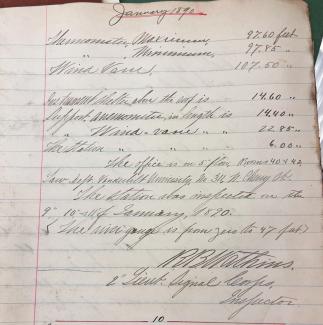 January 1890.
Thermometer, Maximum, 97.60 feet
" Minimum, 97.85 "
Wind Vane, 107.50 "
Instrument shelter above the roof is 14.60 "
Support anemometer, in length is 14.40 "
" Wind-vane " " 22.85 "
The Station " " " 6.00 "
The office is on 5 floor, Rooms 40 & 42
Law-dept. Vanderbilt University No. 314 N. Cherry St.
The station was inspected on the
9", 10" of January, 1890.
(The rain gauge is from zero to 47 feet)
Watkins.
2" Lieut. Signal Corps,
Inspector
10